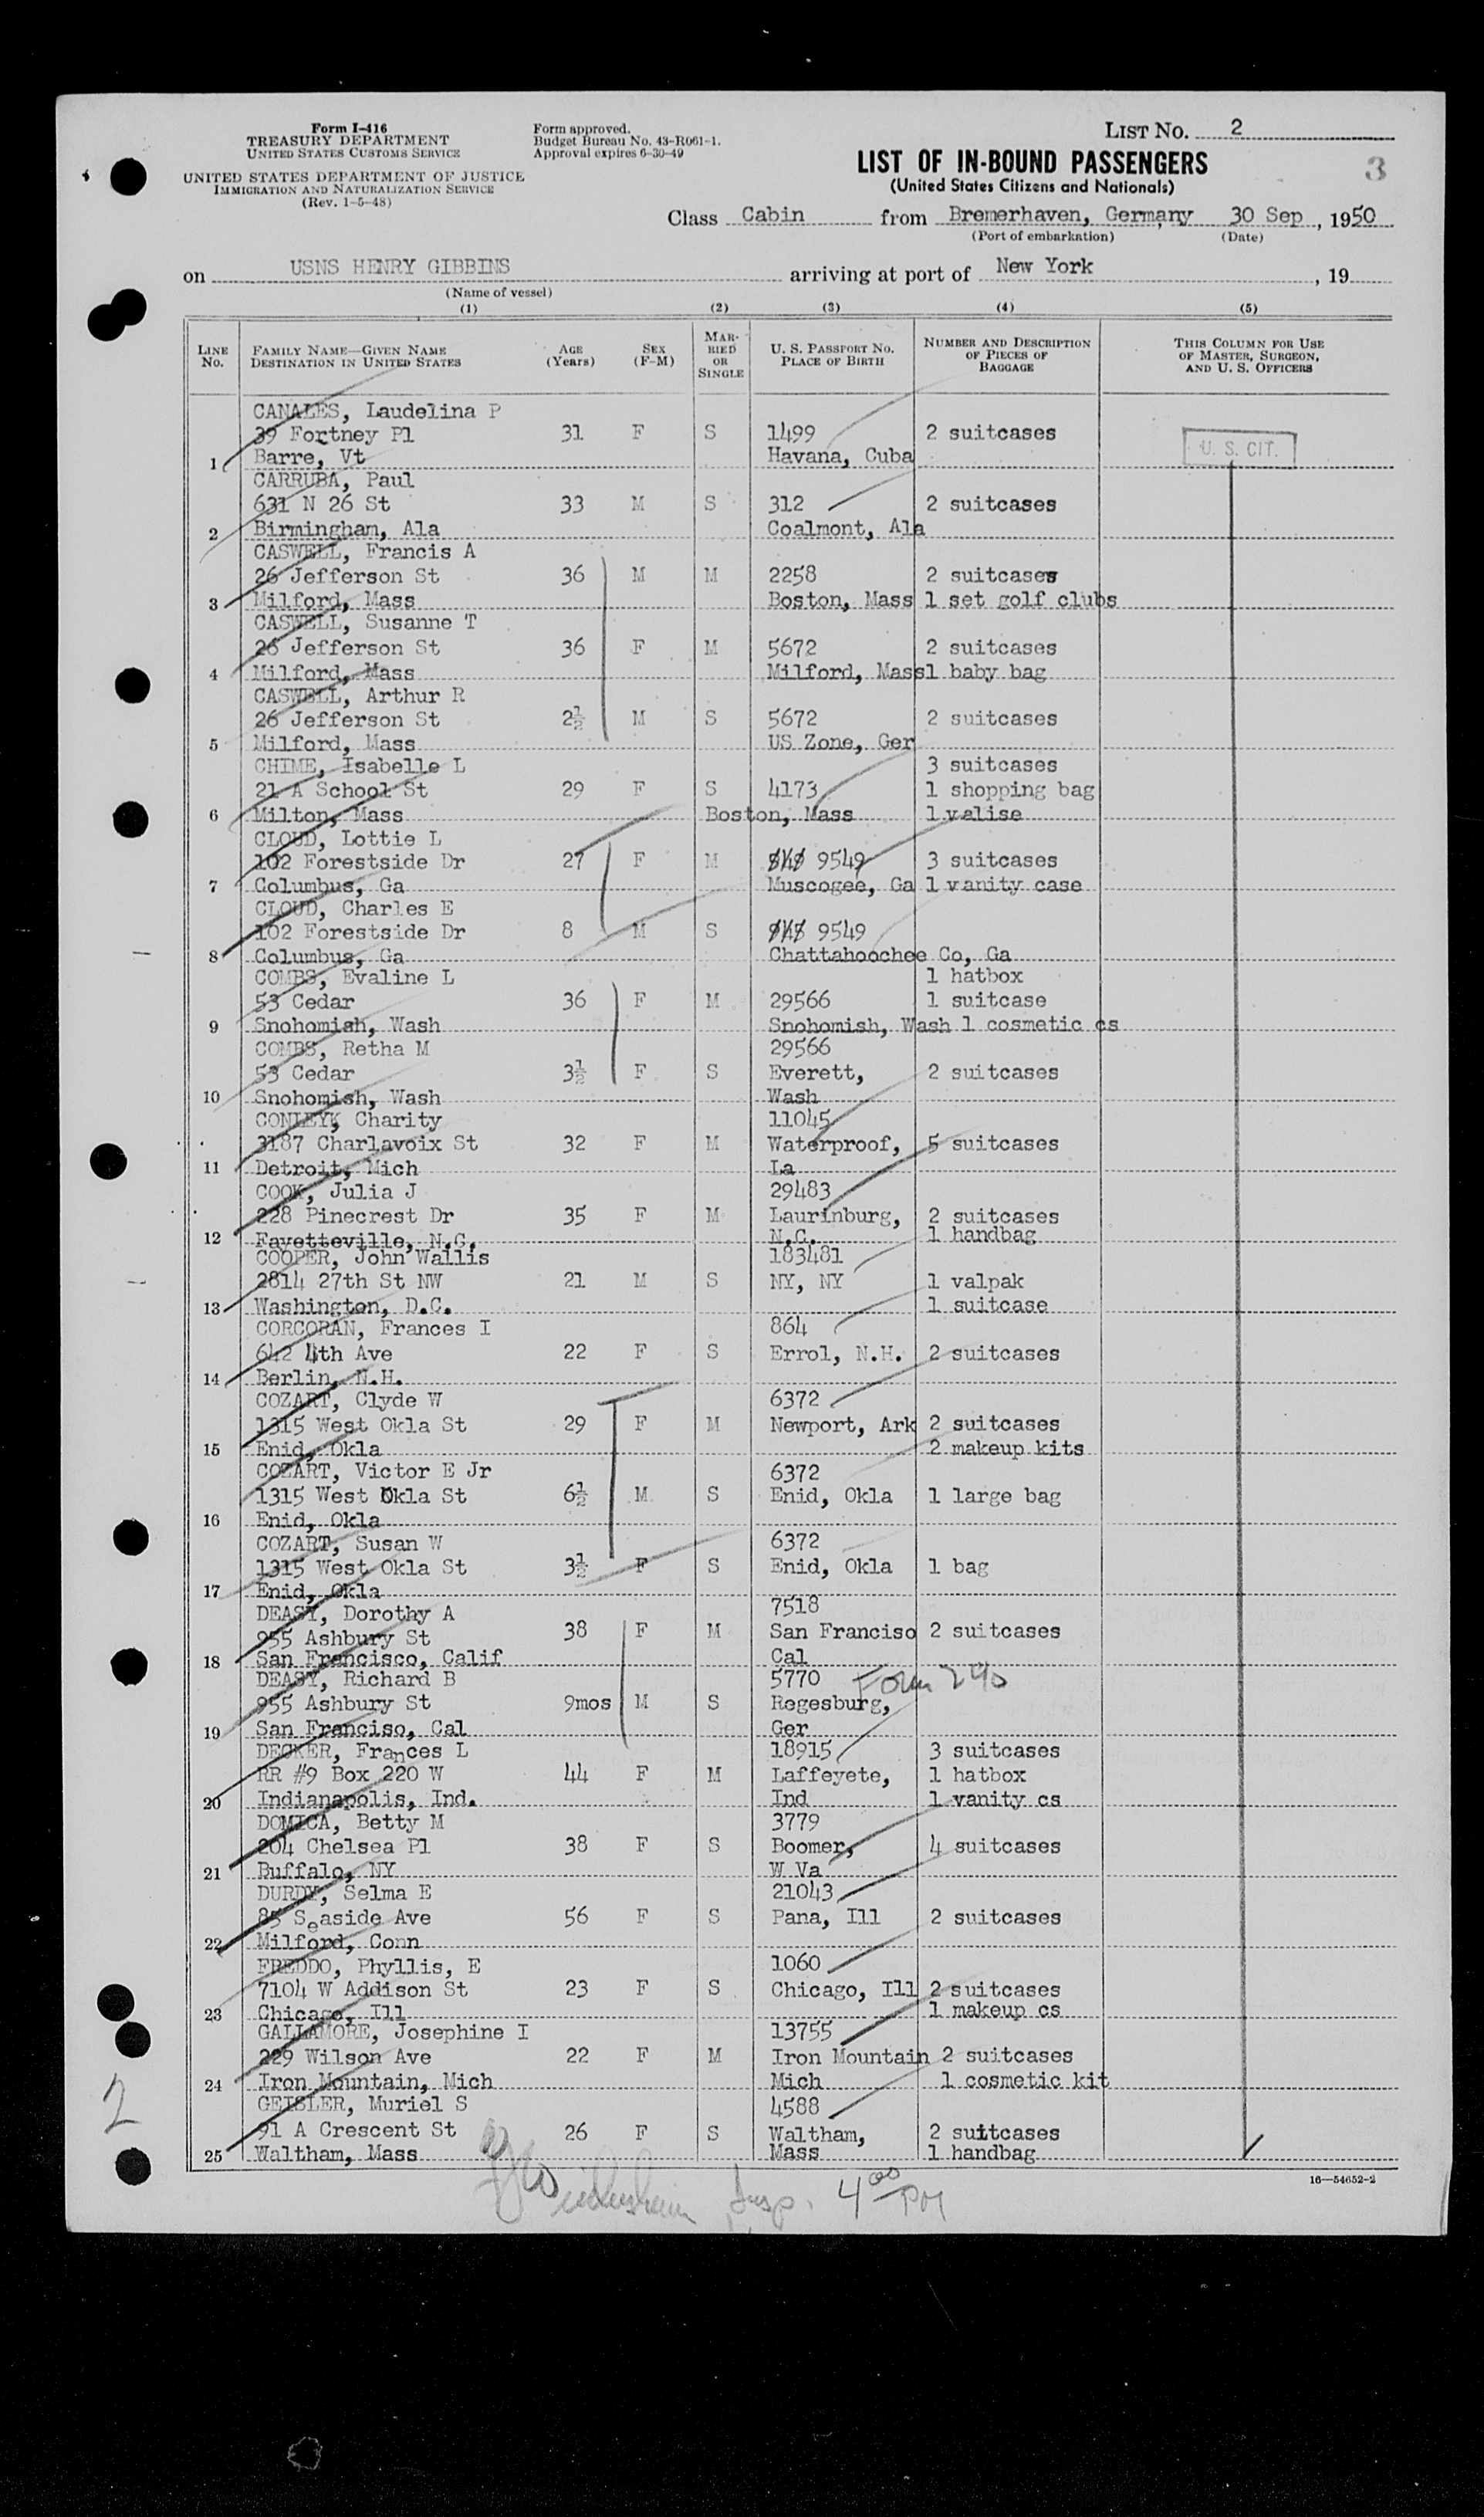 Form I-416
TREASURY DEPARTMENT
UNITED STATES CUSTOMS SERVICE
UNITED STATES DEPARTMENT OF JUSTICE
IMMIGRATION AND NATURALIZATION SERVICE
(Rev. 1-5-48)
Form approved.
Budget Bureau No. 43-R061-1.
Approval expires 6-30-49
LIST NO. 2
LIST OF IN-BOUND PASSENGERS
(United States Citizens and Nationals)
3
Class Cabin from Bremerhaven, Germany 30 Sep, 1950
(Port of embarkation) (Date)
on USNS HENRY GIBBINS arriving at port of New York, 19
(Name of vessel)
(1) (2) (3) (4) (5)
LINE NO. FAMILY NAME—GIVEN NAME DESTINATION IN UNITED STATES AGE (Years) SEX (F-M) MARRIED OR SINGLE U. S. PASSPORT NO. PLACE OF BIRTH NUMBER AND DESCRIPTION OF PIECES OF BAGGAGE THIS COLUMN FOR USE OF MASTER, SURGEON, AND U. S. OFFICERS
CANALES, Laudelina P
39 Fortney Pl 31 F S 1499 2 suitcases U. S. CIT.
1 Barre, Vt Havana, Cuba
CARRUBA, Paul
631 N 26 St 33 M S 312 2 suitcases
2 Birmingham, Ala Coalmont, Ala
CASWELL, Francis A
26 Jefferson St 36 M M 2258 2 suitcases
3 Milford, Mass Boston, Mass 1 set golf clubs
CASWELL, Susanne T
26 Jefferson St 36 F M 5672 2 suitcases
4 Milford, Mass Milford, Mass 1 baby bag
CASWELL, Arthur R
26 Jefferson St 2½ M S 5672 2 suitcases
5 Milford, Mass US Zone, Ger
CHIME, Isabelle L 3 suitcases
21 A School St 29 F S 4173 1 shopping bag
6 Milton, Mass Boston, Mass 1 valise
CLOUD, Lottie L
102 Forestside Dr 27 F M 9549 3 suitcases
7 Columbus, Ga Muscogee, Ga 1 vanity case
CLOUD, Charles E
102 Forestside Dr 8 M S 9549
8 Columbus, Ga Chattahoochee Co, Ga
COMBS, Evaline L 1 hatbox
53 Cedar 36 F M 29566 1 suitcase
9 Snohomish, Wash Snohomish, Wash 1 cosmetic cs
COMBS, Retha M 29566
53 Cedar 3½ F S Everett, 2 suitcases
10 Snohomish, Wash Wash
CONLEY, Charity 11045
3187 Charlavoix St 32 F M Waterproof, 5 suitcases
11 Detroit, Mich La
COOK, Julia J 29483
228 Pinecrest Dr 35 F M Laurinburg, 2 suitcases
12 Fayetteville, N.C. N.C. 1 handbag
COOPER, John Wallis 183481
2814 27th St NW 21 M S NY, NY 1 valpak
13 Washington, D.C. 1 suitcase
CORCORAN, Frances I 864
642 4th Ave 22 F S Errol, N.H. 2 suitcases
14 Berlin, N.H.
COZART, Clyde W 6372
1315 West Okla St 29 F M Newport, Ark 2 suitcases
15 Enid, Okla 2 makeup kits
COZART, Victor E Jr 6372
1315 West Okla St 6½ M S Enid, Okla 1 large bag
16 Enid, Okla
COZART, Susan W 6372
1315 West Okla St 3½ F S Enid, Okla 1 bag
17 Enid, Okla
DEASY, Dorothy A 7518
955 Ashbury St 38 F M San Franciso 2 suitcases
18 San Francisco, Calif Cal
DEASY, Richard B 5770 Form 240
955 Ashbury St 9mos M S Regesburg,
19 San Franciso, Cal Ger
DECKER, Frances L 18915 3 suitcases
RR #9 Box 220 W 44 F M Laffeyete, 1 hatbox
20 Indianapolis, Ind. Ind 1 vanity cs
DOMICA, Betty M 3779
204 Chelsea Pl 38 F S Boomer, 4 suitcases
21 Buffalo, NY W Va
DURDY, Selma E 21043
85 Seaside Ave 56 F S Pana, Ill 2 suitcases
22 Milford, Conn
FREDDO, Phyllis, E 1060
7104 W Addison St 23 F S Chicago, Ill 2 suitcases
23 Chicago, Ill 1 makeup cs
GALLAMORE, Josephine I 13755
229 Wilson Ave 22 F M Iron Mountain 2 suitcases
24 Iron Mountain, Mich Mich 1 cosmetic kit
GEISLER, Muriel S 4588
91 A Crescent St 26 F S Waltham, 2 suitcases
25 Waltham, Mass Mass 1 handbag
2
16—54652-2
Insp. 4 00 PM